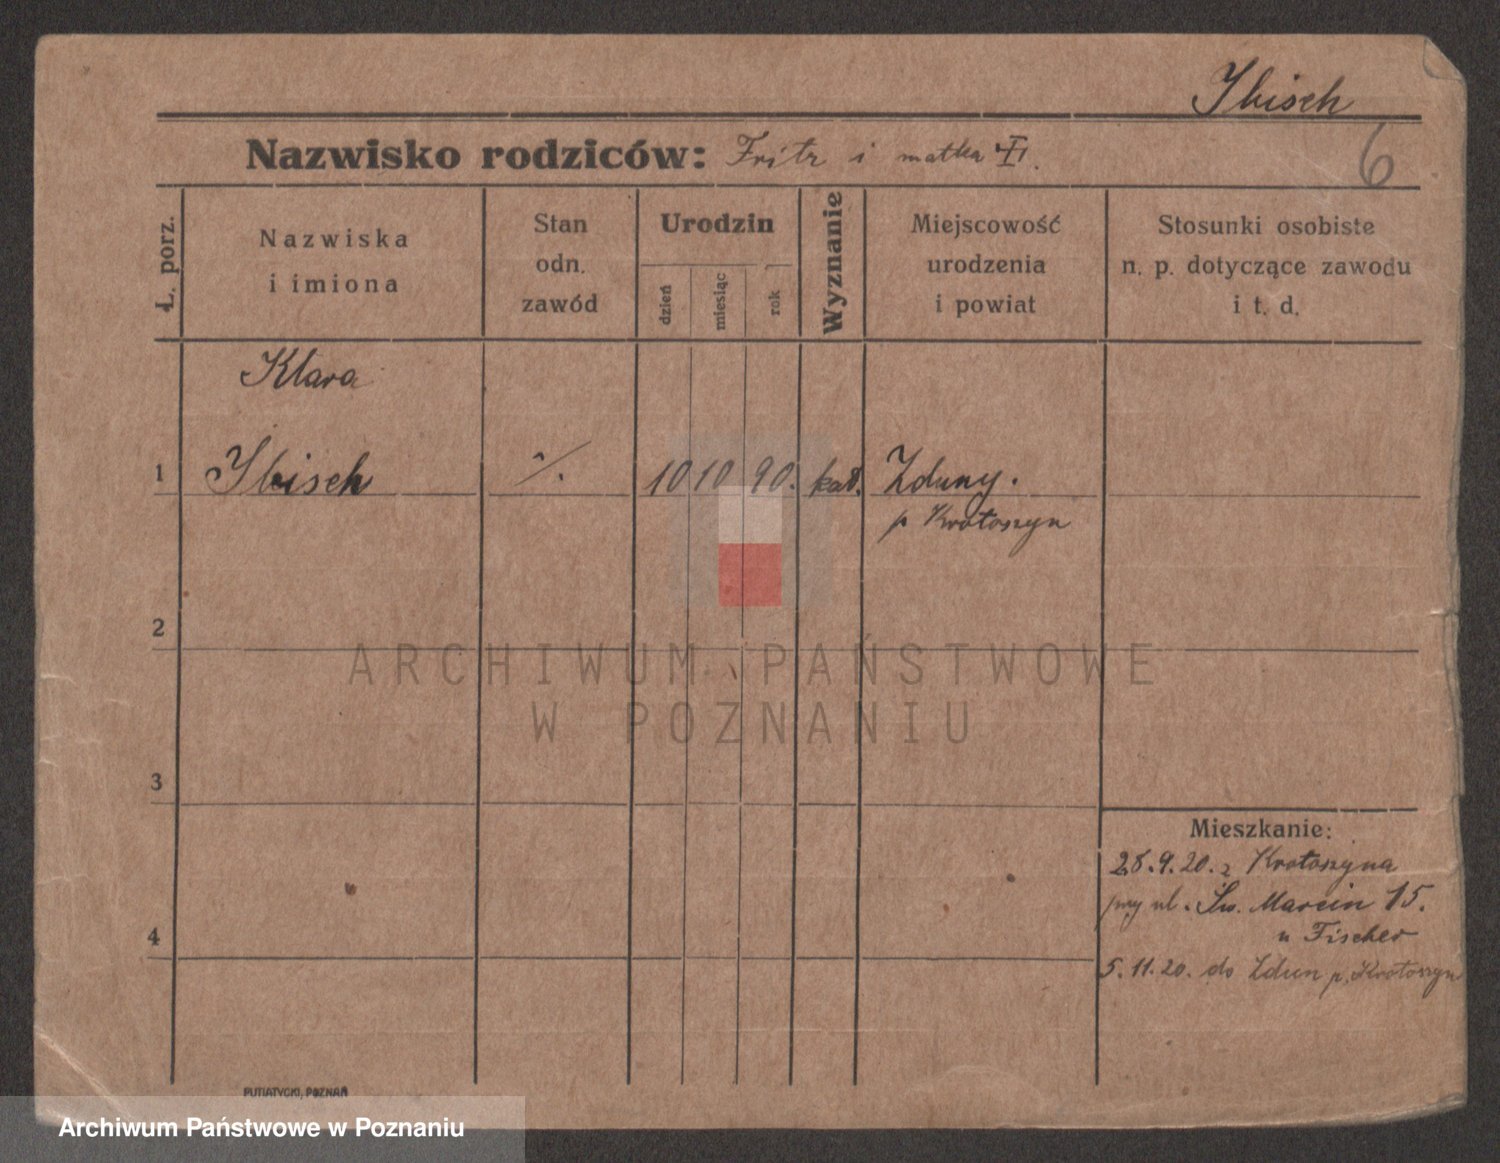 Ibisch
Nazwisko rodziców: Fritz i matka
6
Ł. porz.
Nazwiska
i imiona
Stan
odn.
zawód
Urodzin
dzień
miesiąc
rok
Wyznanie
Miejscowość
urodzenia
i powiat
Stosunki osobiste
n. p. dotyczące zawodu
i t. d.
Klara
1 Ibisch ./. 10 10 90. kat. Zduny.
p Krotoszyn
2
ARCHIWUM PAŃSTWOWE
W POZNANIU
3
Mieszkanie:
28.9.20. z Krotoszyna
przy ul. Św. Marcin 15.
u Fischer
4
5.11.20. do Zdun p. Krotoszyn
PUTIATYCKI, POZNAŃ
Archiwum Państwowe w Poznaniu